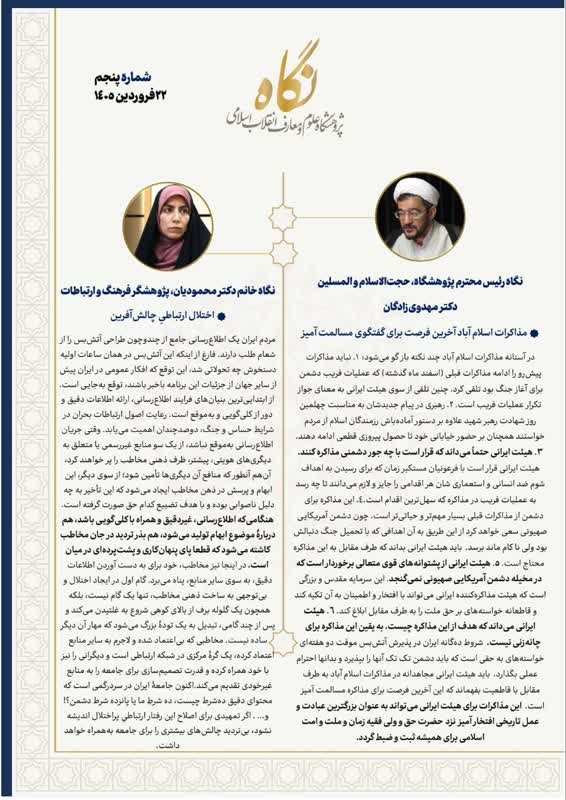 نگاه
پژوهشگاه علوم و معارف انقلاب اسلامی
شماره پنجم
۲۲ فروردین ۱۴۰۵
نگاه رئیس محترم پژوهشگاه، حجت‌الاسلام و المسلین
دکتر مهدوی‌زادگان
مذاکرات اسلام آباد آخرین فرصت برای گفتگوی مسالمت آمیز
در آستانه مذاکرات اسلام آباد چند نکته باز گو می‌شود: ۱. نباید مذاکرات
پیش‌رو را ادامه مذاکرات قبلی (اسفند ماه گذشته) که عملیات فریب دشمن
برای آغاز جنگ بود تلقی کرد. چنین تلقی از سوی هیئت ایرانی به معنای جواز
تکرار عملیات فریب است. ۲. رهبری در پیام جدیدشان به مناسبت چهلمین
روز شهادت رهبر شهید علاوه بر دستور آماده‌باش رزمندگان اسلام از مردم
خواستند همچنان بر حضور خیابانی خود تا حصول پیروزی قطعی ادامه دهند.
۳. هیئت ایرانی حتماً می‌داند که قرار است با چه جور دشمنی مذاکره کنند.
هیئت ایرانی قرار است با فرعونیان مستکبر زمان که برای رسیدن به اهداف
شوم ضد انسانی و استعماری شان هر اقدامی را جایز و لازم می‌دانند تا چه رسد
به عملیات فریب در مذاکره که سهل‌ترین اقدام است. ۴. این مذاکره برای
دشمن از مذاکرات قبلی بسیار مهم‌تر و حیاتی‌تر است. چون دشمن آمریکایی
صهیونی سعی خواهد کرد از این طریق به آن اهدافی که با تحمیل جنگ دنبالش
بود ولی نا کام ماند برسد. باید هیئت ایرانی بداند که طرف مقابل به این مذاکره
محتاج است. ۵. هیئت ایرانی از پشتوانه‌های قوی متعالی برخوردار است که
در مخیله دشمن آمریکایی صهیونی نمی‌گنجد. این سرمایه مقدس و بزرگی
است که هیئت مذاکره‌کننده ایرانی می‌تواند با افتخار و اطمینان به آن تکیه کند
و قاطعانه خواسته‌های بر حق ملت را به طرف مقابل ابلاغ کند. ۶. هیئت
ایرانی می‌داند که هدف از این مذاکره چیست. به یقین این مذاکره برای
چانه‌زنی نیست. شروط ده‌گانه ایران در پذیرش آتش‌بس موقت دو هفته‌ای
خواسته‌های به حقی است که باید دشمن تک تک آنها را بپذیرد و بدانها احترام
عملی بگذارد. باید هیئت ایرانی مجاهدانه در مذاکرات اسلام آباد به طرف
مقابل با قاطعیت بفهماند که این آخرین فرصت برای مذاکره مسالمت آمیز
است. این مذاکرات برای هیئت ایرانی می‌تواند به عنوان بزرگترین عبادت و
عمل تاریخی افتخار آمیز نزد حضرت حق و ولی فقیه زمان و ملت و امت
اسلامی برای همیشه ثبت و ضبط گردد.
نگاه خانم دکتر محمودیان، پژوهشگر فرهنگ و ارتباطات
اختلال ارتباطیِ چالش‌آفرین
مردم ایران یک اطلاع‌رسانی جامع از چندوچون طراحی آتش‌بس را از
شعام طلب دارند. فارغ از اینکه این آتش‌بس در همان ساعات اولیه
دستخوش چه تحولاتی شد، این توقع که افکار عمومی در ایران پیش
از سایر جهان از جزئیات این برنامه باخبر باشند، توقع به‌جایی است.
از ابتدایی‌ترین بنیان‌های فرایند اطلاع‌رسانی، ارائه اطلاعات دقیق و
دور از کلی‌گویی و به‌موقع است. رعایت اصول ارتباطات بحران در
شرایط حساس و جنگ، دوصدچندان اهمیت می‌یابد. وقتی جریان
اطلاع‌رسانی به‌موقع نباشد، از یک سو منابع غیررسمی یا متعلق به
دیگری‌های هویتی، پیشتر، ظرف ذهنی مخاطب را پر خواهند کرد،
آن‌هم آنطور که منافع آن دیگری‌ها تأمین شود؛ از سوی دیگر، این
ابهام و پرسش در ذهن مخاطب ایجاد می‌شود که این تأخیر به چه
دلیل ناصوابی بوده و با هدف تضییع کدام حق صورت گرفته است.
هنگامی‌که اطلاع‌رسانی، غیردقیق و همراه با کلی‌گویی باشد، هم
دربارهٔ موضوع ابهام تولید می‌شود، هم بذر تردید در جان مخاطب
کاشته می‌شود که قطعا پای پنهان‌کاری و پشت‌پرده‌ای در میان
است. در اینجا نیز مخاطب، خود برای به دست آوردن اطلاعات
دقیق، به سوی سایر منابع، پناه می‌برد. گام اول در ایجاد اختلال و
بی‌توجهی به ساخت ذهنی مخاطب، تنها یک گام نیست، بلکه
همچون یک گلوله برف از بالای کوهی شروع به غلتیدن می‌کند و
پس از چند گامی، تبدیل به یک تودهٔ بزرگ می‌شود که مهار آن دیگر
ساده نیست. مخاطبی که بی‌اعتماد شده و لاجرم به سایر منابع
اعتماد کرده، یک گرهٔ مرکزی در شبکه ارتباطی است و دیگرانی را نیز
با خود همراه کرده و قدرت تصمیم‌سازی برای جامعه را به منابع
غیرخودی تقدیم می‌کند.اکنون جامعهٔ ایران در سردرگمی است که
محتوای دقیق ده‌شرط چیست، ده شرطِ ما یا پانزده شرط دشمن؟!
و... . اگر تمهیدی برای اصلاح این رفتار ارتباطیِ پراختلال اندیشه
نشود، بی‌تردید چالش‌های بیشتری را برای جامعه به‌همراه خواهد
داشت.